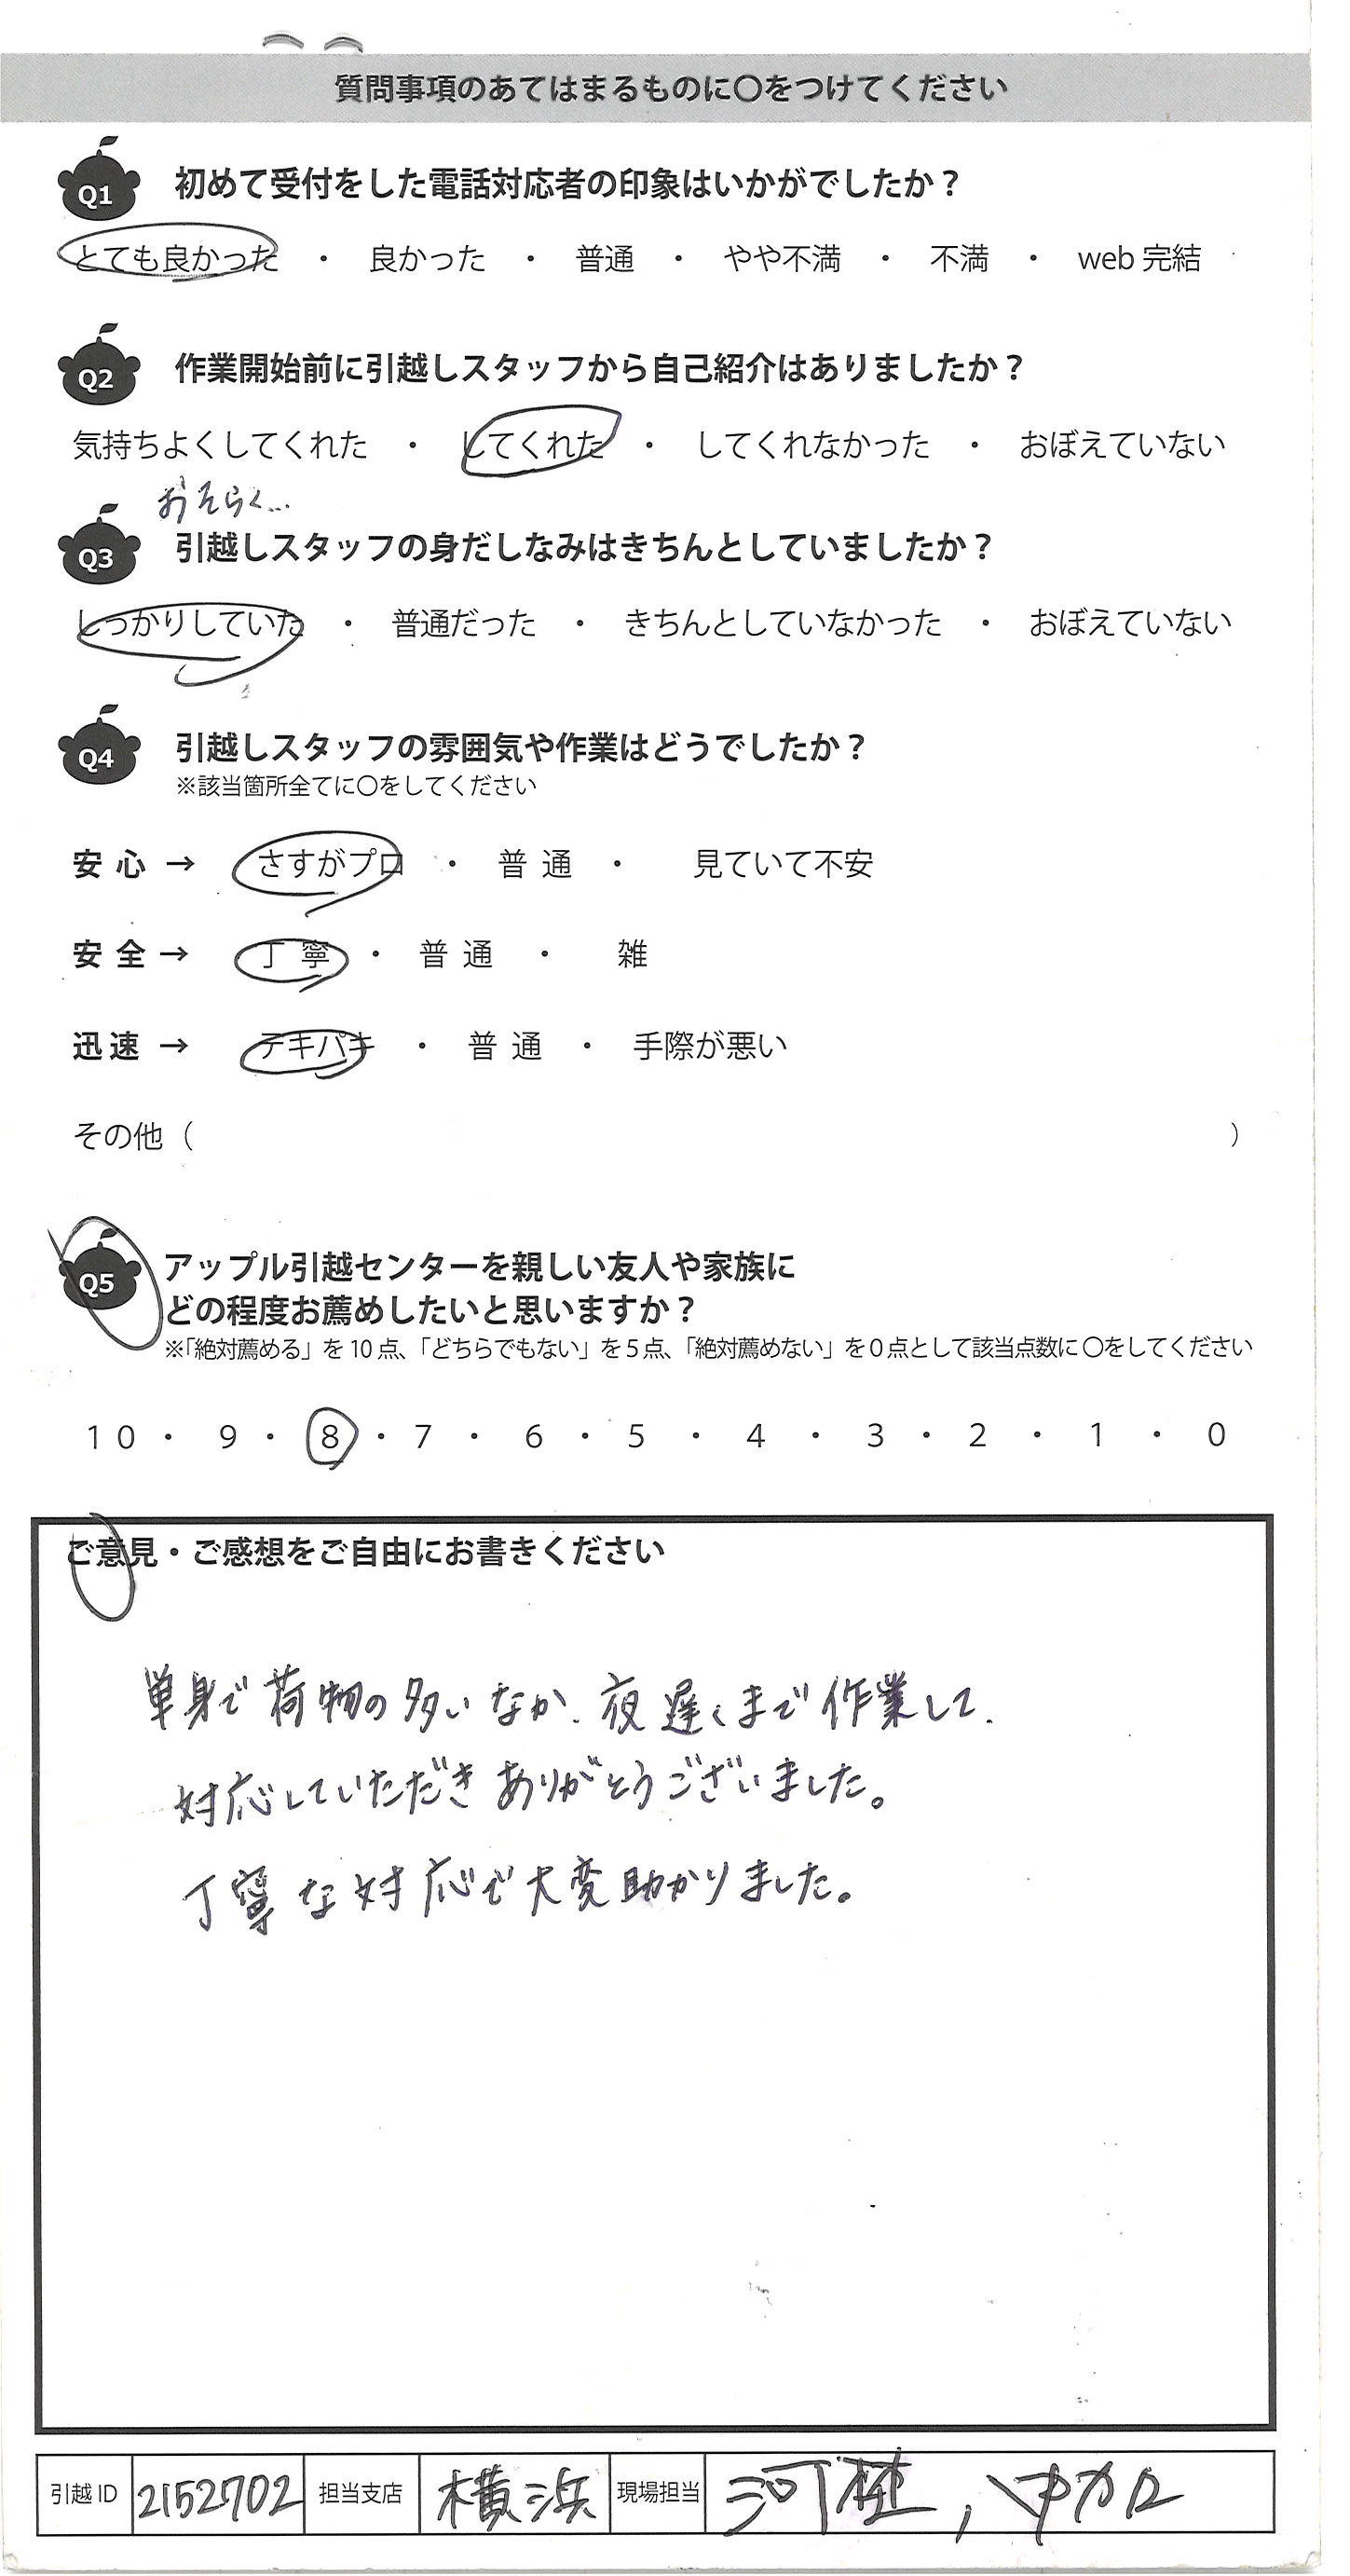 質問事項のあてはまるものに〇をつけてください
Q1 初めて受付をした電話対応者の印象はいかがでしたか？
とても良かった ・ 良かった ・ 普通 ・ やや不満 ・ 不満 ・ web 完結
Q2 作業開始前に引越しスタッフから自己紹介はありましたか？
気持ちよくしてくれた ・ してくれた ・ してくれなかった ・ おぼえていない
おそらく…
Q3 引越しスタッフの身だしなみはきちんとしていましたか？
しっかりしていた ・ 普通だった ・ きちんとしていなかった ・ おぼえていない
Q4 引越しスタッフの雰囲気や作業はどうでしたか？
※該当箇所全てに〇をしてください
安心 → さすがプロ ・ 普通 ・ 見ていて不安
安全 → 丁寧 ・ 普通 ・ 雑
迅速 → テキパキ ・ 普通 ・ 手際が悪い
その他（ ）
Q5 アップル引越センターを親しい友人や家族に
どの程度お薦めしたいと思いますか？
※「絶対薦める」を 10 点、「どちらでもない」を 5 点、「絶対薦めない」を 0 点として該当点数に 〇をしてください
10 ・ 9 ・ 8 ・ 7 ・ 6 ・ 5 ・ 4 ・ 3 ・ 2 ・ 1 ・ 0
ご意見・ご感想をご自由にお書きください
単身で荷物の多いなか、夜遅くまで作業して、
対応していただきありがとうございました。
丁寧な対応で大変助かりました。
引越 ID 2152702 担当支店 横浜 現場担当 河